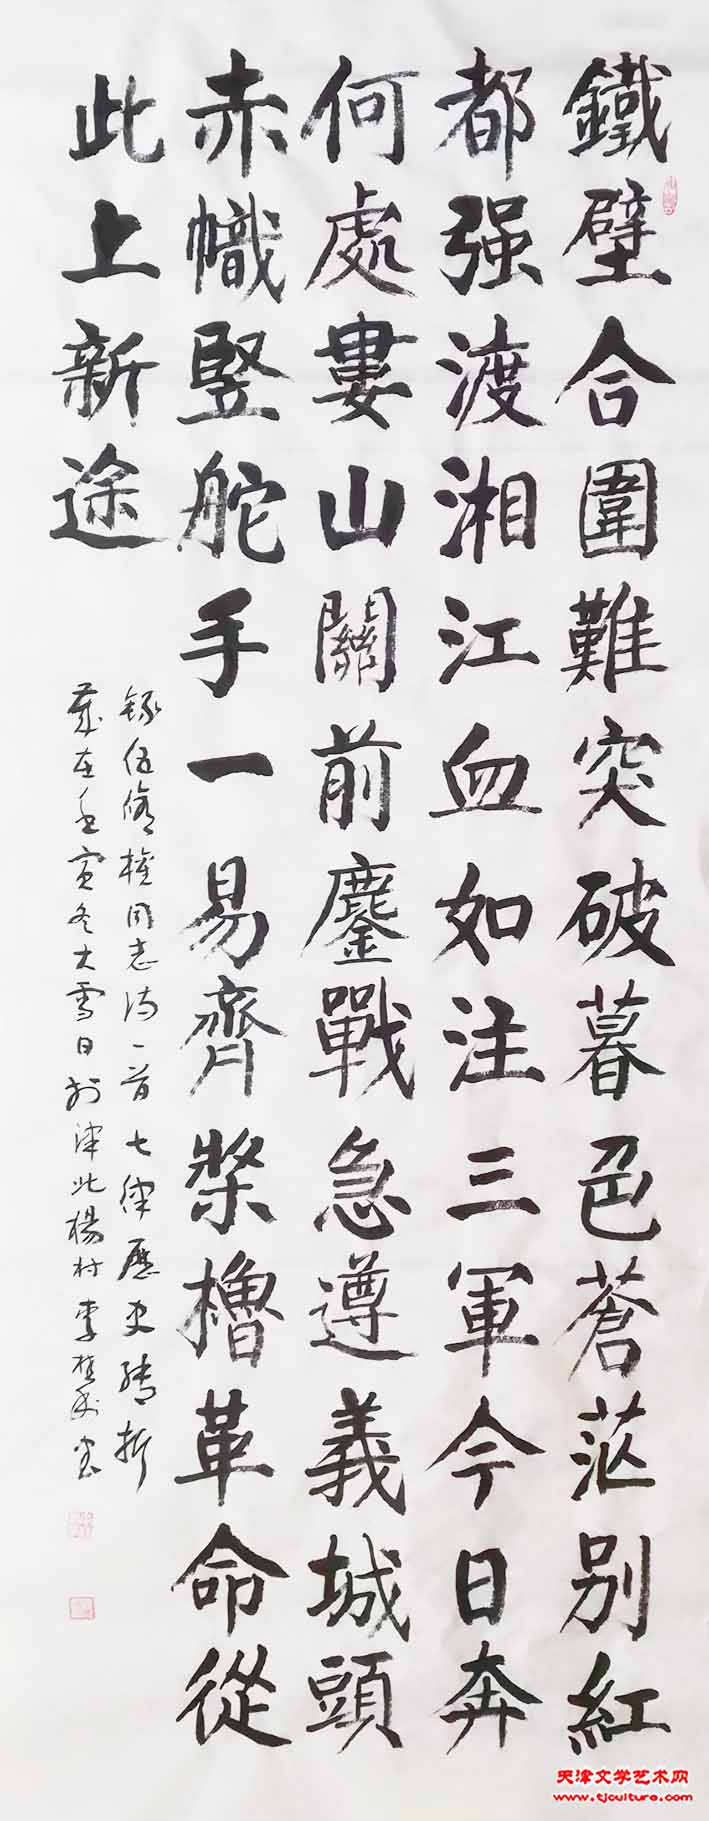 鐵壁合圍難突破暮色蒼茫别紅
都强渡湘江血如注三軍今日奔
何處婁山關前鏖戰急遵義城頭
赤幟竪舵手一易齊槳櫓革命從
此上新途
錄伍修權同志詩一首七律歷史轉折
歲在壬寅冬大雪日於津北楊村李書
天津文学艺术网
www.tjculture.com